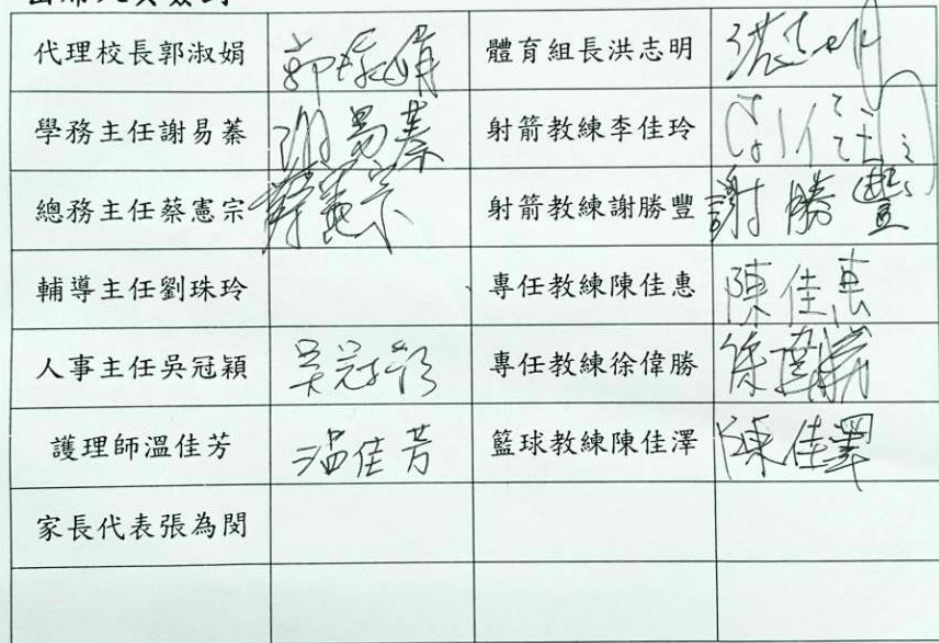 代理校長郭淑娟 郭淑娟 體育組長洪志明 洪志明
學務主任謝易蓁 謝易蓁 射箭教練李佳玲
總務主任蔡憲宗 蔡憲宗 射箭教練謝勝豐 謝勝豐
輔導主任劉珠玲 專任教練陳佳惠 陳佳惠
人事主任吳冠穎 吳冠穎 專任教練徐偉勝 徐偉勝
護理師溫佳芳 溫佳芳 籃球教練陳佳澤 陳佳澤
家長代表張為閔